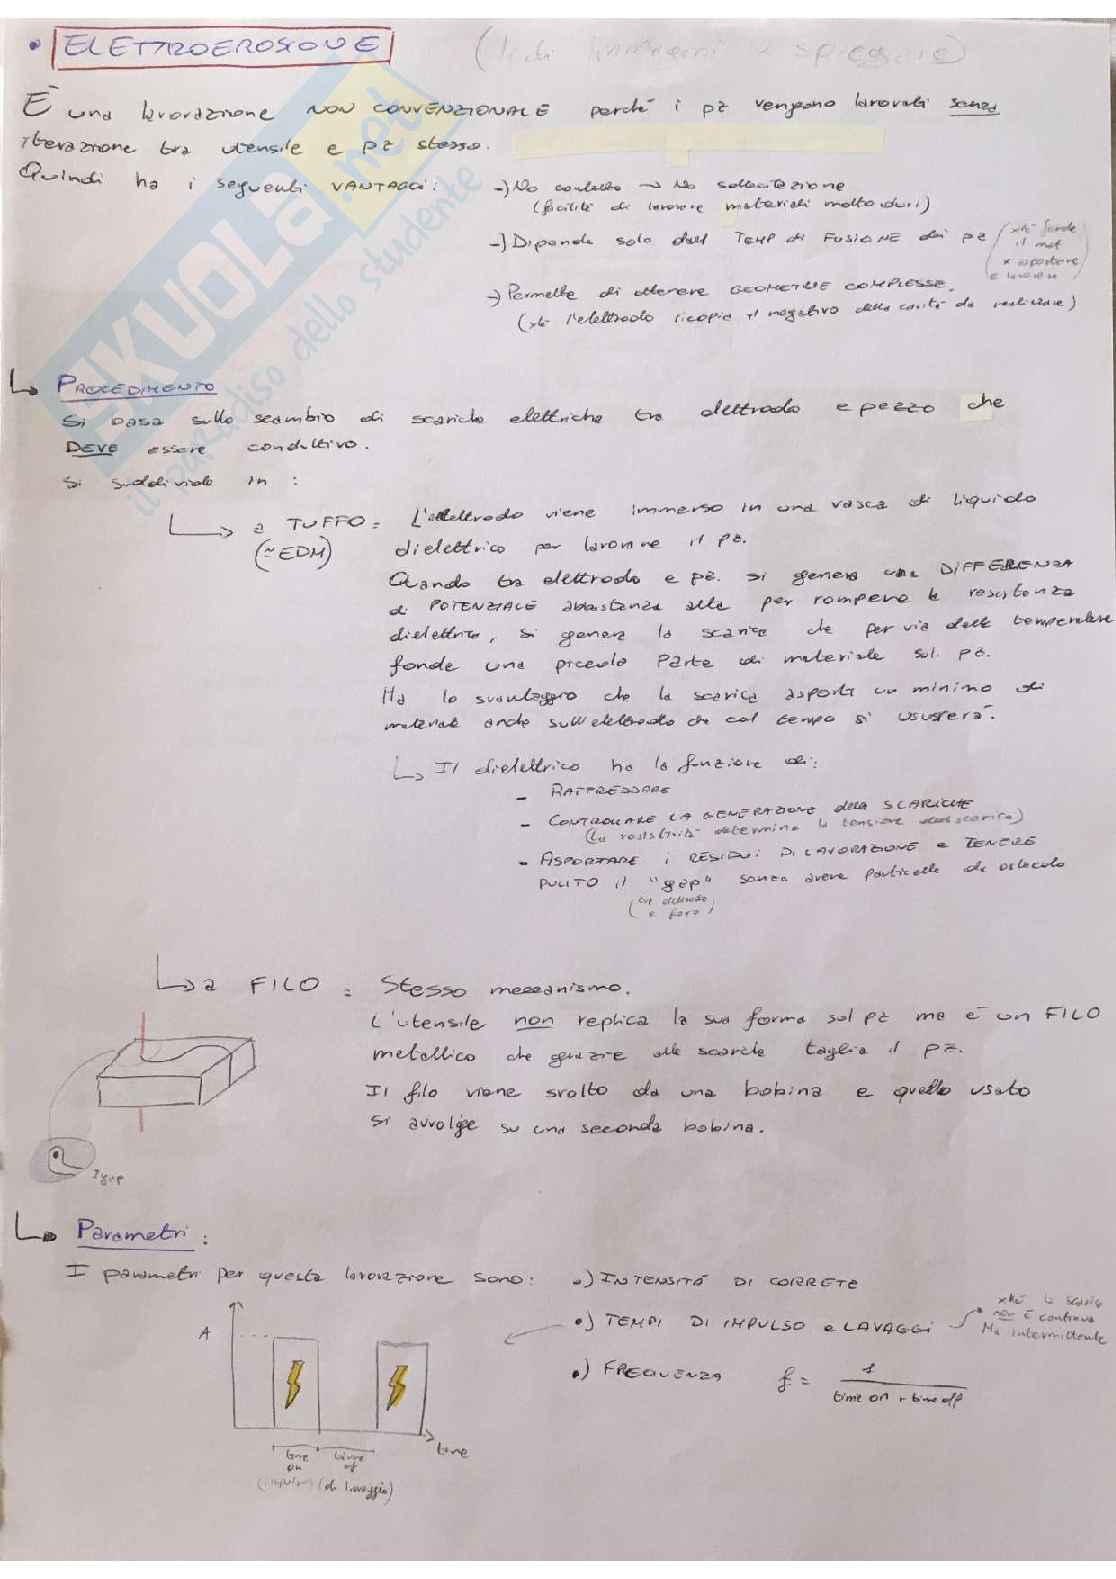 • ELETTROEROSIONE
(vedi immagini x spiegare)
È una lavorazione NON CONVENZIONALE perché i pz vengono lavorati senza
iterazione tra utensile e pz stesso.
Quindi ha i seguenti VANTAGGI:
-) No contatto → No sollecitazione
(facilità di lavorare materiali molto duri)
-) Dipende solo dall TEMP di FUSIONE dei pz
(xké fonde
il mat
x asportare
e lavorare)
-) Permette di ottenere GEOMETRIE COMPLESSE.
(xké l'elettrodo ricopia il negativo della cavità da realizzare)
PROCEDIMENTO
Si basa sullo scambio di scariche elettriche tra elettrodo e pezzo che
DEVE essere conduttivo.
Si suddivide in :
a TUFFO = L'elettrodo viene immerso in una vasca di liquido
(~EDM)
dielettrico per lavorare il pz.
Quando tra elettrodo e pz. si genera una DIFFERENZA
di POTENZIALE abbastanza alta per rompere la resistenza
dielettrica, si genera la scarica che per via delle temperature
fonde una piccola parte di materiale sul pz.
Ha lo svantaggio che la scarica asporta un minimo di
materiale anche sull'elettrodo che col tempo si usurerà.
Il dielettrico ha la funzione di:
- RAFFREDDARE
- CONTROLLARE LA GENERAZIONE della SCARICHE
(La resistività determina la tensione della scarica)
- ASPORTARE i RESIDUI DI LAVORAZIONE e TENERE
PULITO il "gap" senza avere particelle che ostacolo
(tra elettrodo
e foro)
a FILO = Stesso meccanismo.
L'utensile non replica la sua forma sul pz ma è un FILO
metallico che grazie alle scariche taglia il pz.
Il filo viene svolto da una bobina e quello usato
si avvolge su una seconda bobina.
Parametri:
I parametri per questa lavorazione sono:
•) INTENSITÁ DI CORRETE
•) TEMPI DI IMPULSO e LAVAGGI
xké la scarica
non è continua
Ma intermittente
•) FREQUENZA f = 1
time on + time off
A
time
time on
time of
(impulso) (di lavaggio)
SKUOLA.net
il paradiso dello studente